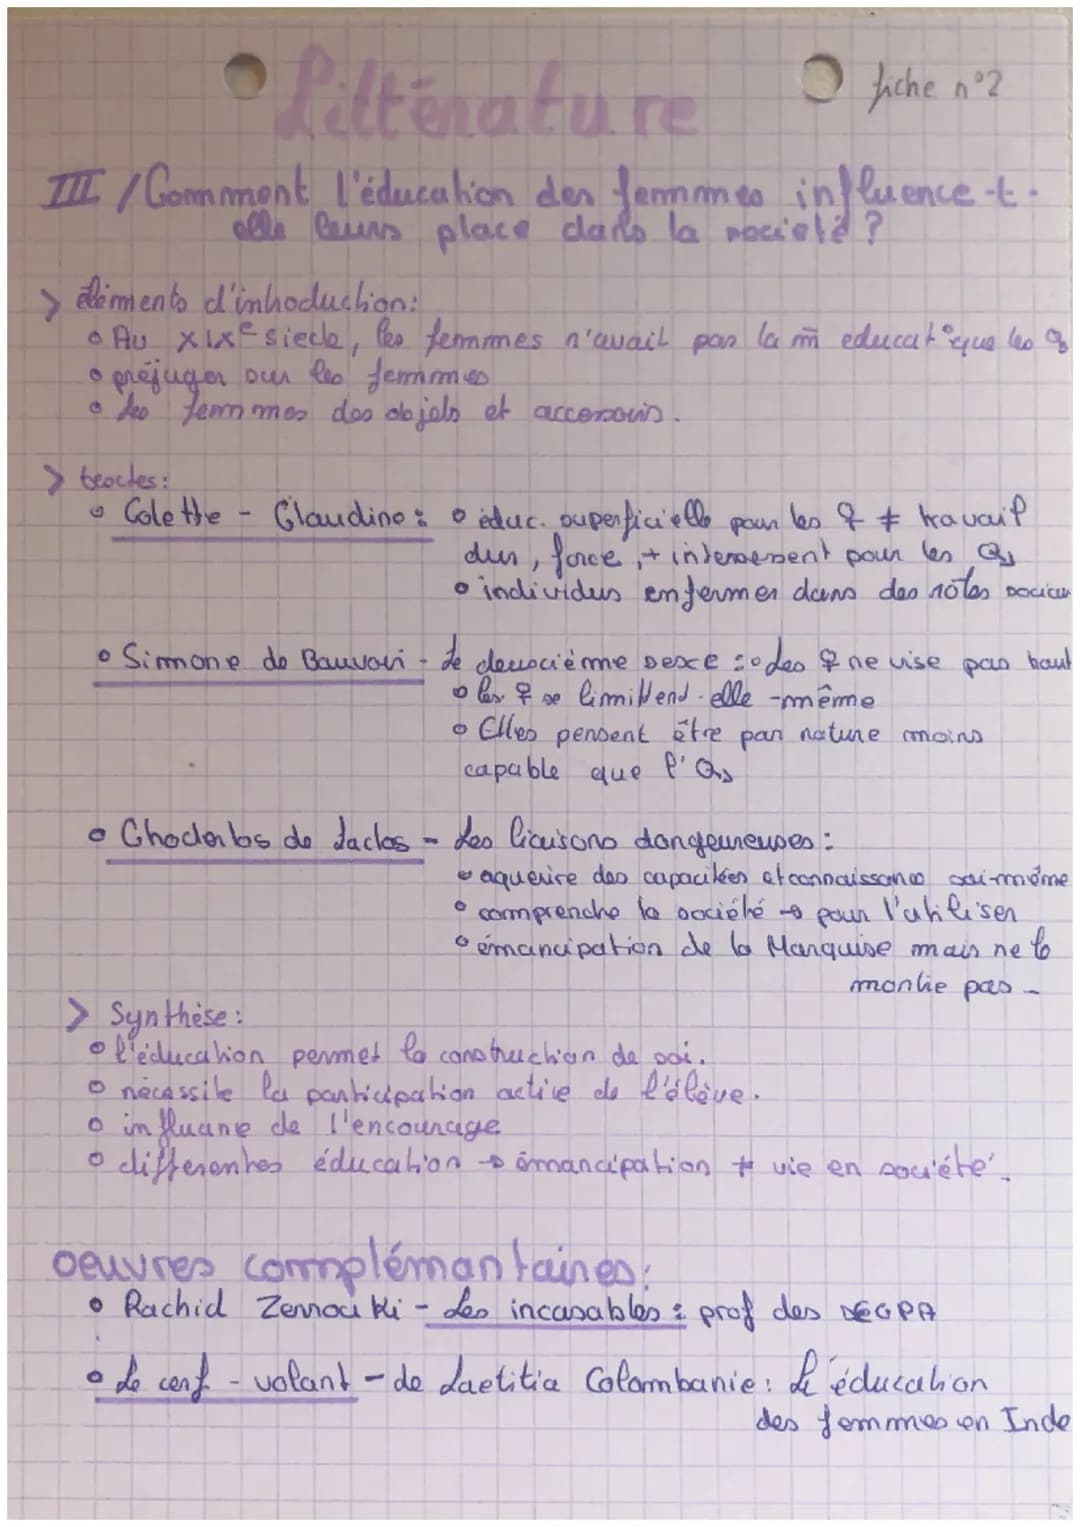 Littérature
fiche n°2
III / Comment l'éducation des femmes influence-t-
elle leurs place dans la société ?
> éléments d'introduction:
Au XIXe siecle, les femmes n'avait pas la m̄ educat° que les ♂
préjuger sur les femmes
les femmes des objets et accessoirs.
> textes:
Colette - Claudine: educ. superficielle pour les ♀ ≠ travail
dur, force, + interessent pour les ♂
individus enfermer dans des rôles sociau
Simone de Bauvoir - Le deuxième sexe : les ♀ ne vise pas haut
les ♀ se limittent elle-même
Elles pensent être par nature moins
capable que l'♂
Choderlos de Laclos - Les liaisons dangeureuses :
aquerire des capacitées et connaissance soi-même
comprendre la société → pour l'utiliser
émancipation de la Marquise mais ne le
montre pas -
> Synthèse :
l'éducation permet la construction de soi.
nécessite la participation active de l'élève.
influane de l'encourage
differentes éducation → émancipation ≠ vie en société.
oeuvres complémantaines:
Rachid - Les incasables : prof des SEGPA
Le cerf-volant - de Laetitia Colombanie: L'éducation
des femmes en Inde